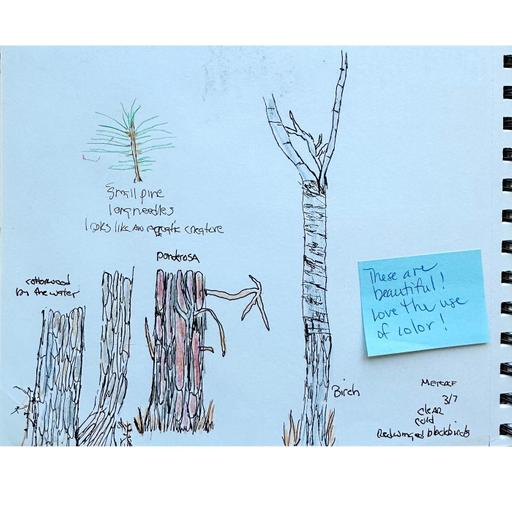 Small pine
long needles
looks like an aquatic creature
ponderosa
cottonwood
by the water
Birch
These are
beautiful!
Love the use
of color!
3/7
clear
cold
Redwinged blackbirds